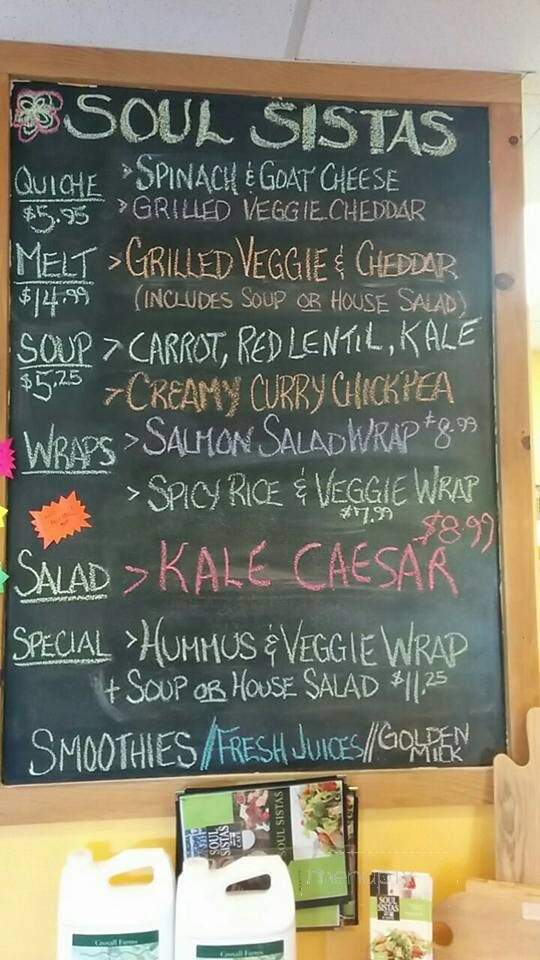 SOUL SISTAS
QUICHE > SPINACH & GOAT CHEESE
$5.95 > GRILLED VEGGIE CHEDDAR
MELT > GRILLED VEGGIE & CHEDDAR
$14.99 (INCLUDES SOUP OR HOUSE SALAD)
SOUP > CARROT, RED LENTIL, KALE
$5.25 > CREAMY CURRY CHICKPEA
WRAPS > SALMON SALAD WRAP $8.99
> SPICY RICE & VEGGIE WRAP
$7.99
$8.99
SALAD > KALE CAESAR
SPECIAL > HUMMUS & VEGGIE WRAP
+ SOUP OR HOUSE SALAD $11.25
SMOOTHIES // FRESH JUICES // GOLDEN MILK
SOUL SISTAS
SOUL SISTAS
SOUL SISTAS